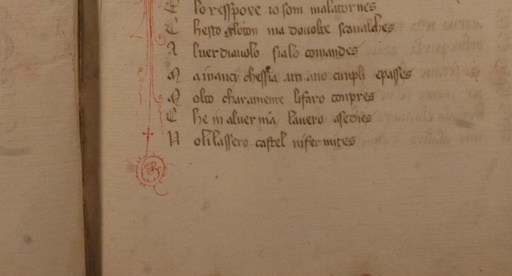 E lo respoxe io som malatornes
C hesto gloton ma dovolte scavalches
A l ver diavolo sia lo comandes
M a inanci chessia un ano cinpli epasses
M olto charamente li faro conpres
C he in alver m̃a lavero asedies
N oli lassero castel ni fermites